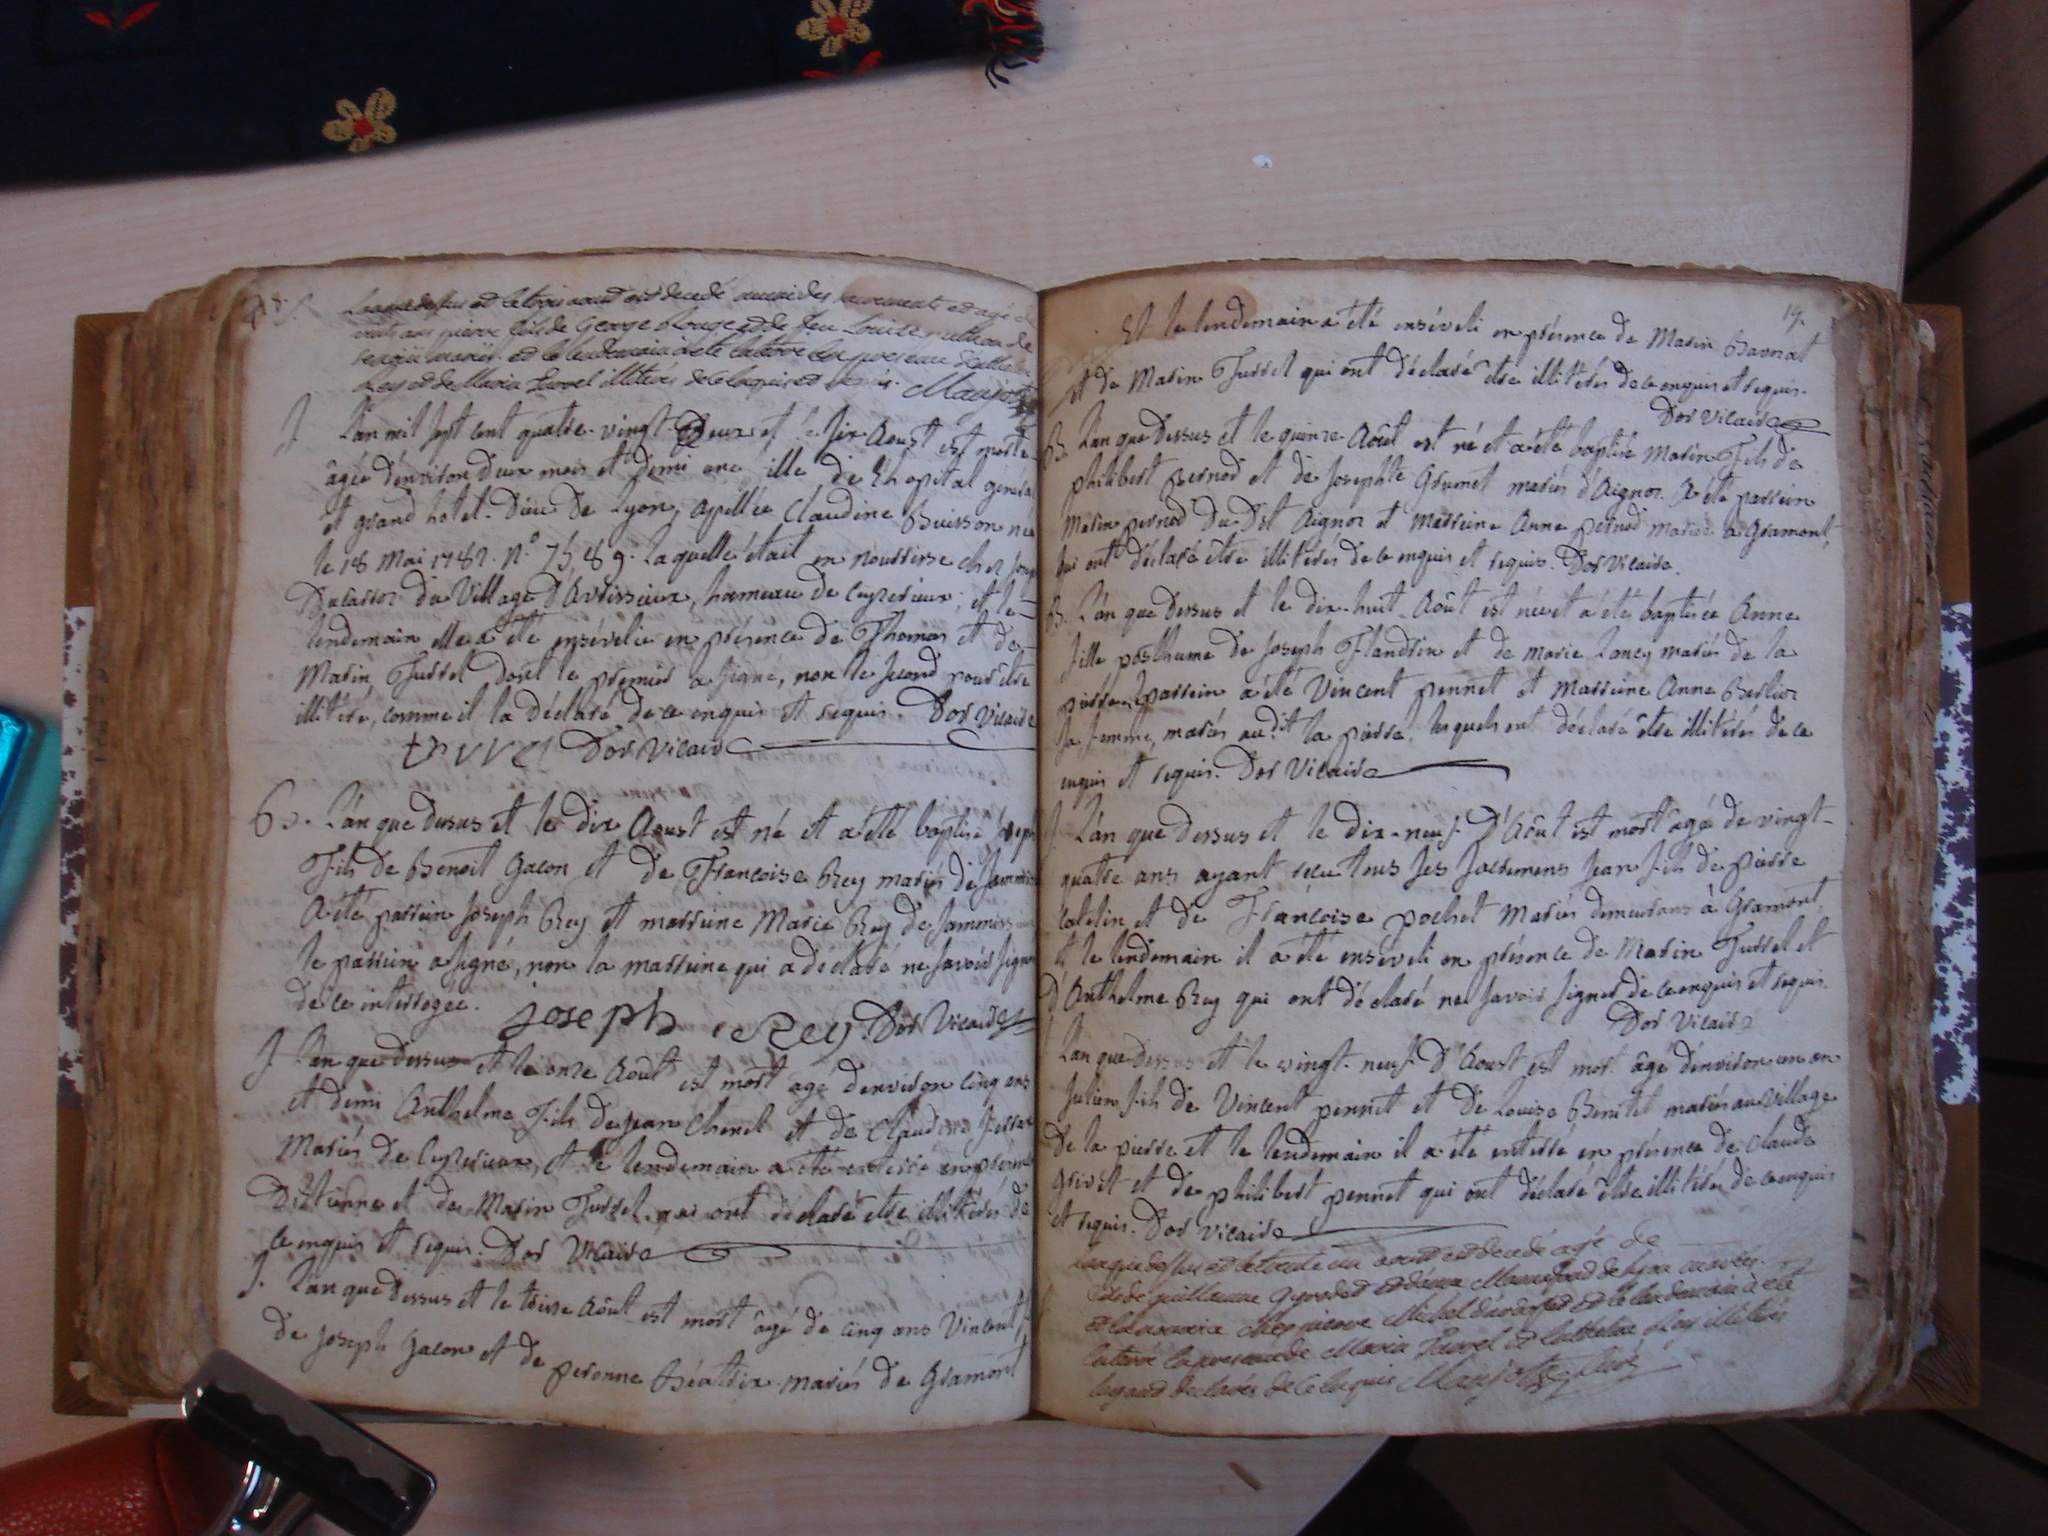 18.
L'an que dessus et le trois aoust est decedé muni des sacrements et agé de
vint ans pierre fils de George Rouge et de feu Louise
mariés et le lendemain à eté enterré en presence d'anthelme
Rey et de Marin Turrel illiterés de ce enquis et requis. Manjot
S. L'an mil sept cent quatre-vingt-Deux et le six Aoust est morte
âgée d'environ deux mois et demi une fille de l'hopital general
et grand hotel-Dieu De Lyon, apellée Claudine Buisson née
le 18 Mai 1782. N.º 7589. Laquelle était en nourrisse chez Joseph
Ducarroz du Village D'Avrissieux, hameau de Ceyzerieux, et le
lendemain elle a été ensévelie en présence de Thomas et de
Marin Turrel dont le premier a signé, non le second pour être
illitéré, comme il la déclaré de ce enquis et requis. Dor Vicaire
turrel Dor Vicaire
B. L'an que dessus et le dix Aoust est né et a été baptisé Joseph
Fils de Benoit Gacon et de Francoise Rey mariés de
A été parrein Joseph Rey et marreine Marie Rey de
le parrein a signé, non la marreine qui a déclaré ne savoir signer
de ce interrogée. Joseph Rey. Dor Vicaire
S. L'an que dessus et le onze Août est mort agé d'environ cinq ans
et demi Anthelme Fils de Jean Chenel et de Claudine
Mariés de Ceyzerieux, et le lendemain a été enterré en présence
D'étienne et de Marin Turrel qui ont déclaré etre illiterés de
ce enquis et requis. Dor Vicaire
S. L'an que dessus et le treize Août est mort âgé de cinq ans Vincent, f
de Joseph Gacon et de peronne Béatrix mariés de Gramont
19.
Et le lendemain a été enséveli en présence de Marin Barrat
et de Marin Turrel qui ont déclaré être illitérés de ce enquis et requis.
Dor Vicaire
B. L'an que Dessus et le quinze Août est né et a été baptisé Marin Fils de
philibert pernod et de Josephte Grumet mariés d'Aignoz. A été parrein
Marin pernod du Dit Aignoz et Marreine Anne pernod mariée à Gramont,
qui ont déclaré être illitérés de ce enquis et requis. Dor Vicaire.
B. L'an que Dessus et le dix-huit Août est née et a été baptisée Anne
fille posthume de Joseph Flandrin et de marie Lancy mariés de la
pierre. parrein a été Vincent pennet et Marreine Anne Berlioz
sa femme, mariés au dit la pierre. lesquels ont déclaré être illitérés de ce
enquis et requis. Dor Vicaire
S. L'an que Dessus et le Dix-neuf D'Août est mort âgé de vingt-
quatre ans ayant récu tous ses sacremens Jean fils de pierre
Catelin et de Françoise pochet Mariés demeurans à Gramont,
et le lendemain il a été enséveli en présence de Marin Turrel et
D'Anthelme Rey qui ont déclaré ne savoir signer de ce enquis et requis.
Dor Vicaire
L'an que dessus et le vingt-neuf D'Aoust est mort âgé d'environ un an
Julien fils de Vincent pennet et de Louise Benitet mariés au Village
De la pierre et le lendemain il a été enterré en présence de Claude
Grivet et de philibert pennet qui ont déclaré être illitérés de ce enquis
et requis. Dor Vicaire
L'an que dessus et le trente un aoust est decedé agé de
fils de guillaume et d'anne de lyon mariés
et le lendemain à eté
enterré en presence de Marin Turrel et d'anthelme Rey illiterés
declarés de ce enquis Manjot curé